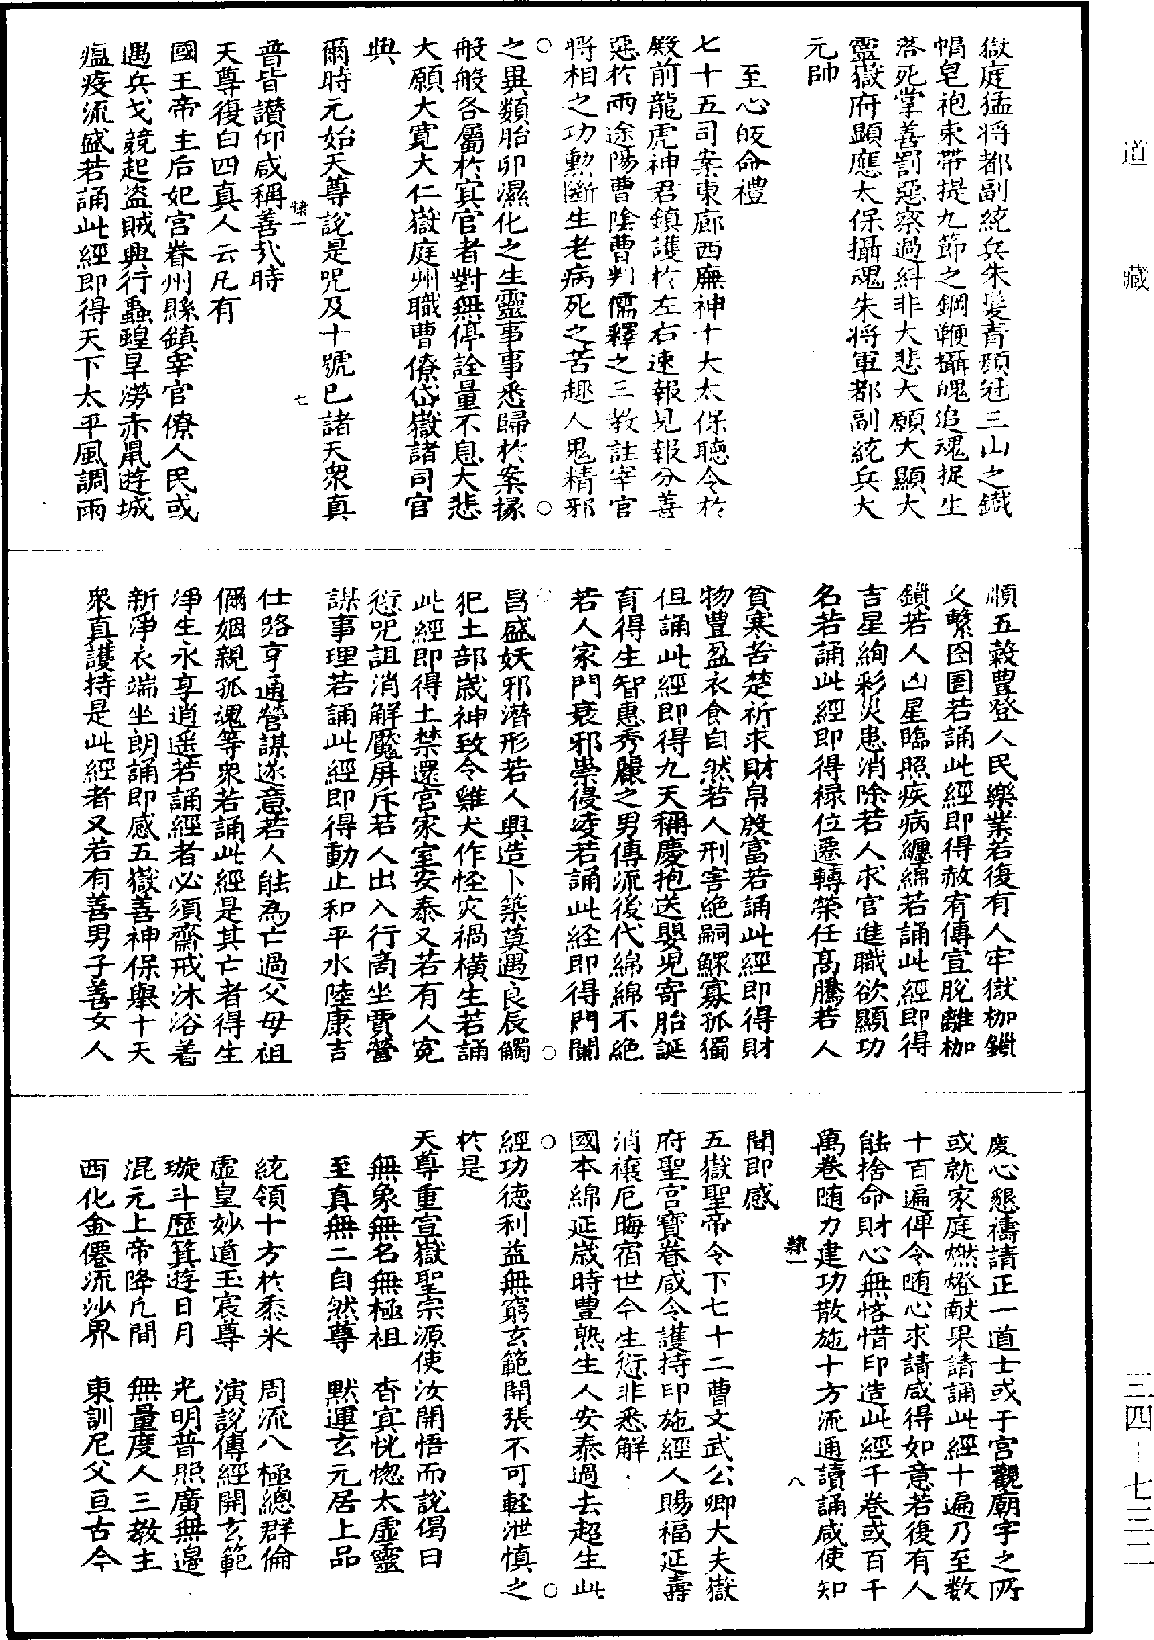 道藏
獄庭猛將都副統兵朱髮青顏冠三山之鐵
帽皂袍束帶提九節之鋼鞭攝魄追魂捉生
落死掌善罰惡察過糾非大悲大願大顯大
靈獄府顯應太保攝魂朱將軍都副統兵大
元帥
至心皈命禮
七十五司案東廊西廡神十大太保聽令於
殿前龍虎神君鎮護於左右速報見報分善
惡於兩途陽曹陰曹判儒釋之三教註宰官
將相之功勳斷生老病死之苦趣人鬼精邪
之異類胎卵濕化之生靈事事悉歸於案掾
般般各屬於冥官者對無停詮量不息大悲
大願大寬大仁嶽庭州職曹僚岱嶽諸司官
典
爾時元始天尊說是咒及十號已諸天衆真
普皆讚仰咸稱善哉時
隸一 七
天尊復白四真人云凡有
國王帝主后妃宮眷州縣鎮宰官僚人民或
遇兵戈競起盜賊興行蟲蝗旱澇赤鼠遊城
瘟疫流盛若誦此經即得天下太平風調雨
順五穀豊登人民樂業若復有人牢獄枷鎖
乆繫囹圄若誦此經即得赦宥傳宣脫離枷
鎖若人凶星臨照疾病纏綿若誦此經即得
吉星絢彩災患消除若人求官進職欲顯功
名若誦此經即得祿位遷轉榮任髙騰若人
貧寒苦楚祈求財帛殷富若誦此經即得財
物豊盈衣食自然若人刑害絕嗣鰥寡孤獨
但誦此經即得九天稱慶抱送嬰児寄胎誕
育得生智惠秀麗之男傳流後代綿綿不絕
若人家門衰邪祟侵凌若誦此経即得門闌
昌盛妖邪潛形若人興造卜築莫遇良辰觸
犯土部歲神致令雞犬作怪灾禍橫生若誦
此經即得土禁還宮家室安泰又若有人冤
愆咒詛消解魘屏斥若人出入行商坐賈營
謀事理若誦此經即得動止和平水陸康吉
仕路亨通營謀遂意若人能為亡過父母祖
儞姻親孤魂等衆若誦此經是其亡者得生
淨生永享逍遥若誦經者必須齋戒沐浴着
新淨衣端坐朗誦即感五嶽善神保舉十天
衆真護持是此經者又若有善男子善女人
虔心懇禱請正一道士或于宮觀廟宇之所
或就家庭燃燈献果請誦此經十遍乃至数
十百遍俾令随心求請咸得如意若後有人
能捨命財心無悋惜印造此經千卷或百千
萬卷随力建功散施十方流通讀誦咸使知
聞即感
隸一 八
五嶽聖帝令下七十二曹文武公卿大夫嶽
府聖宮寶卷咸令護持印施經人賜福延壽
消禳厄晦宿世今生愆非悉解
國本綿延歲時豊熟生人安泰過去超生此
經功德利益無窮玄範開張不可輕泄慎之
於是
天尊重宣嶽聖宗源使汝開悟而說偈曰
無象無名無極祖 杳冥恍惚太虛靈
至真無二自然尊 默運玄元居上品
統領十方於黍米 周流八極總群倫
虛皇妙道玉宸尊 演說傳經開玄範
璇斗歷箕遊日月 光明普照廣無邊
混元上帝降凢間 無量度人三教主
西化金僊流沙界 東訓尼父亘古今
三四—七三二